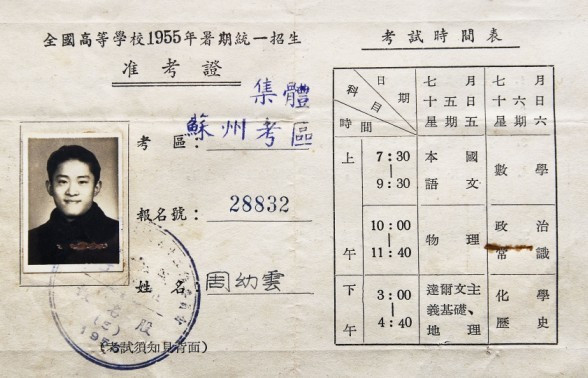 全國高等學校1955年暑期統一招生
准考證
集體
考區：蘇州考區
報名號：28832
姓名 周幼雲
(考試須知見背面)
考試時間表
日期 科目 時間 七月十五日星期五 七月十六日星期六
上午 7:30–9:30 本國語文 數學
10:00–11:40 物理 政治常識
下午 3:00–4:40 達爾文主義基礎、地理 化學歷史